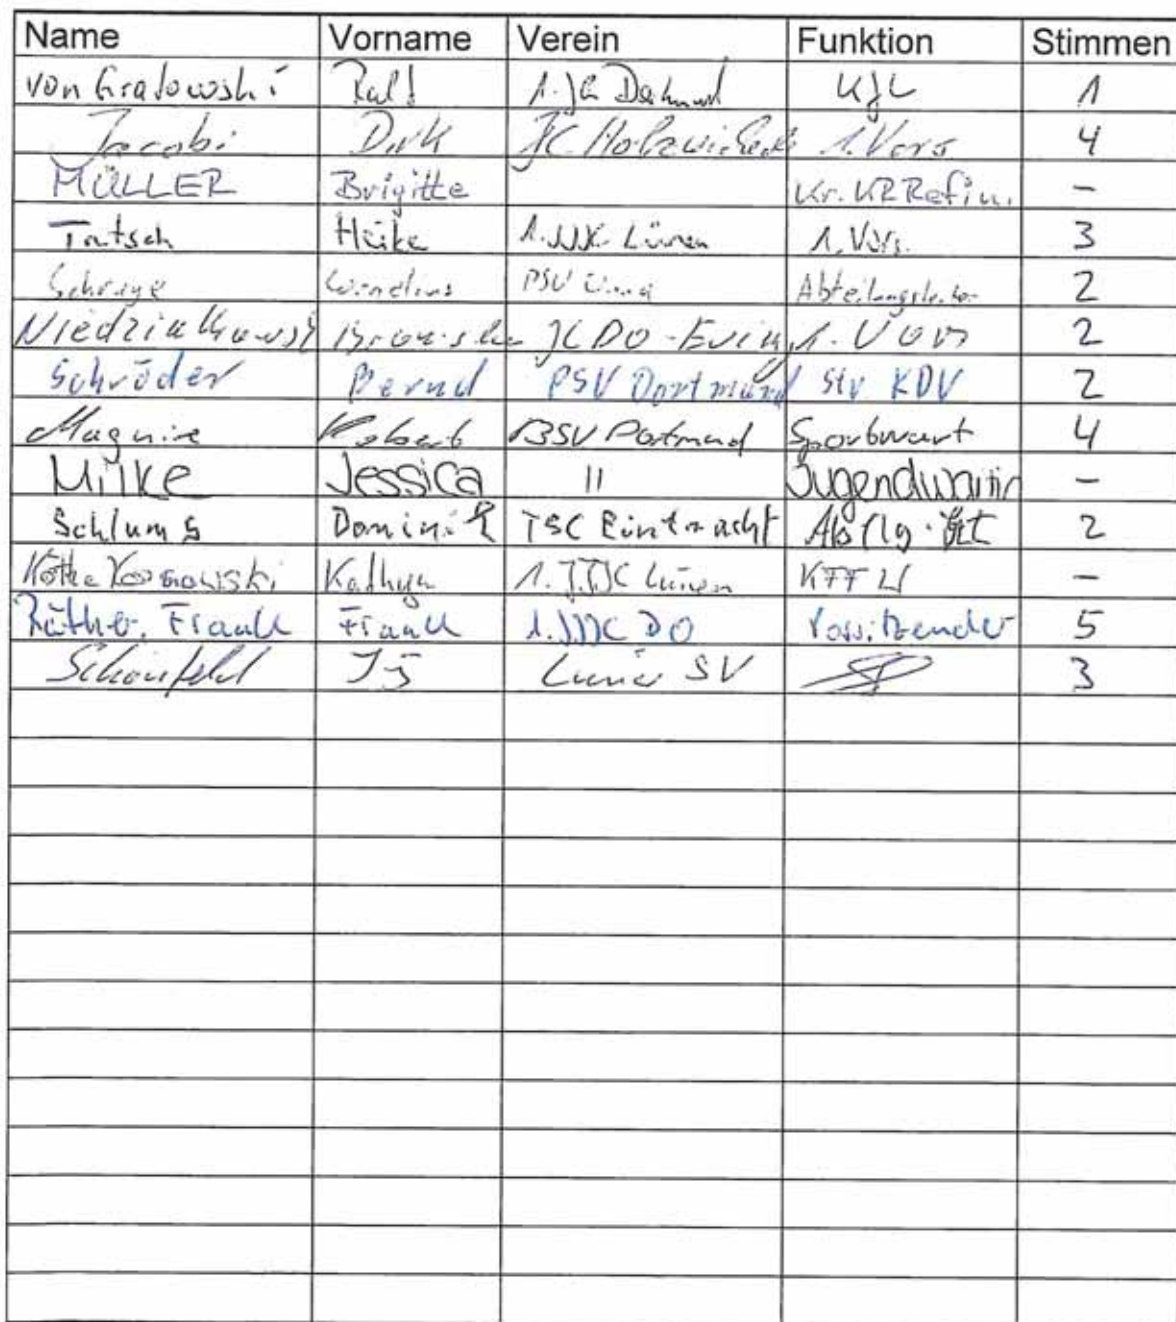 Name Vorname Verein Funktion Stimmen
von Gralowski Ralf 1. JC Dortmund KJL 1
Jacobi Dirk JC Holzwickede 1. Vors 4
MÜLLER Brigitte Kr. KR Refin. -
Tatsch Heike 1. JJJC Lünen 1. Vors. 3
Schrage Cornelius PSV Unna Abteilungsleiter 2
Niedzialkowski JC DO-Eving 1. Vors 2
Schröder Bernd PSV Dortmund Stv KDV 2
Maguire Robert BSV Dortmund Sportwart 4
Milke Jessica 11 Jugendwartin -
Schlums Dominik TSC Eintracht Abtlg. 2
Kothe Kosmowski Kathrin 1. JJJC Lünen -
Räther, Frank Frank 1. JJJC DO Vorsitzender 5
Schönfeld Lüner SV 3